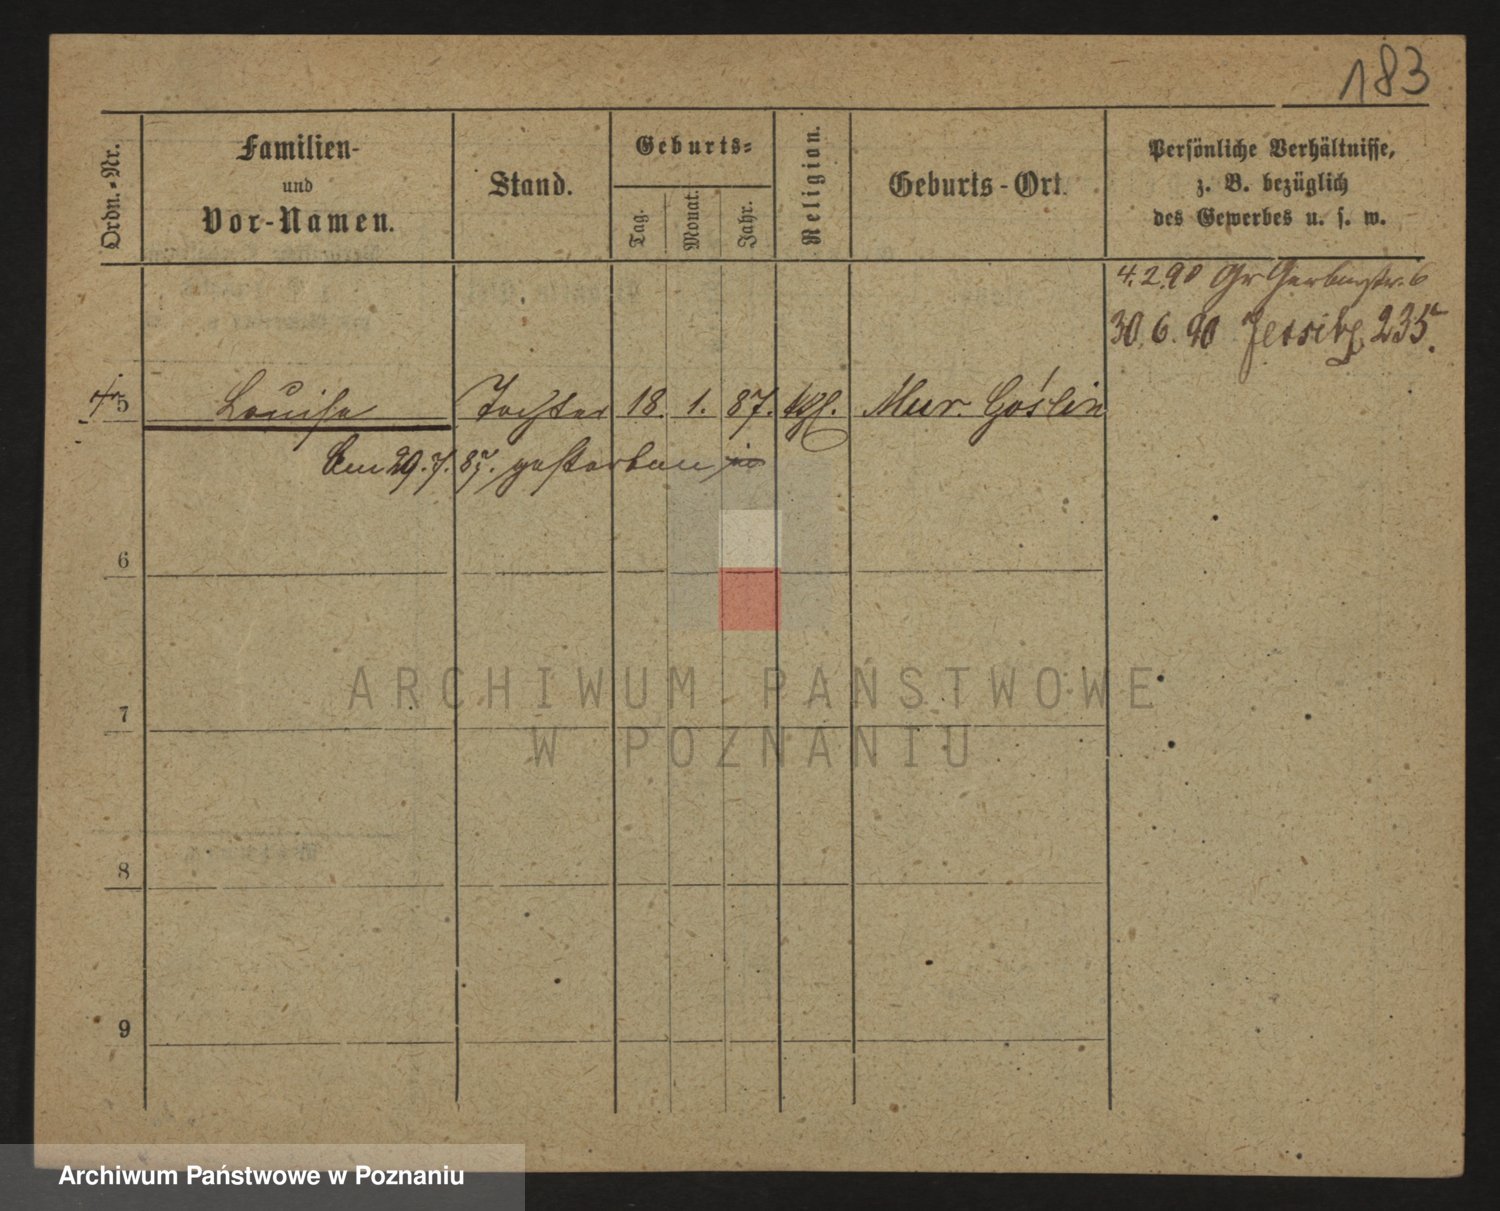 183
Ordn.-Nr.
Familien-
und
Vor-Namen.
Stand.
Geburts-
Tag.
Monat.
Jahr.
Religion.
Geburts-Ort.
Persönliche Verhältnisse,
z. B. bezüglich
des Gewerbes u. s. w.
4.2.90 Gr Gerberstr. 6
30.6.90 Jersitz 235.
5 Louise Tochter 18. 1. 87. kth. Mur. Goślin
Am 29.7.87. gestorben
6
7
8
9
ARCHIWUM PAŃSTWOWE
W POZNANIU
Archiwum Państwowe w Poznaniu